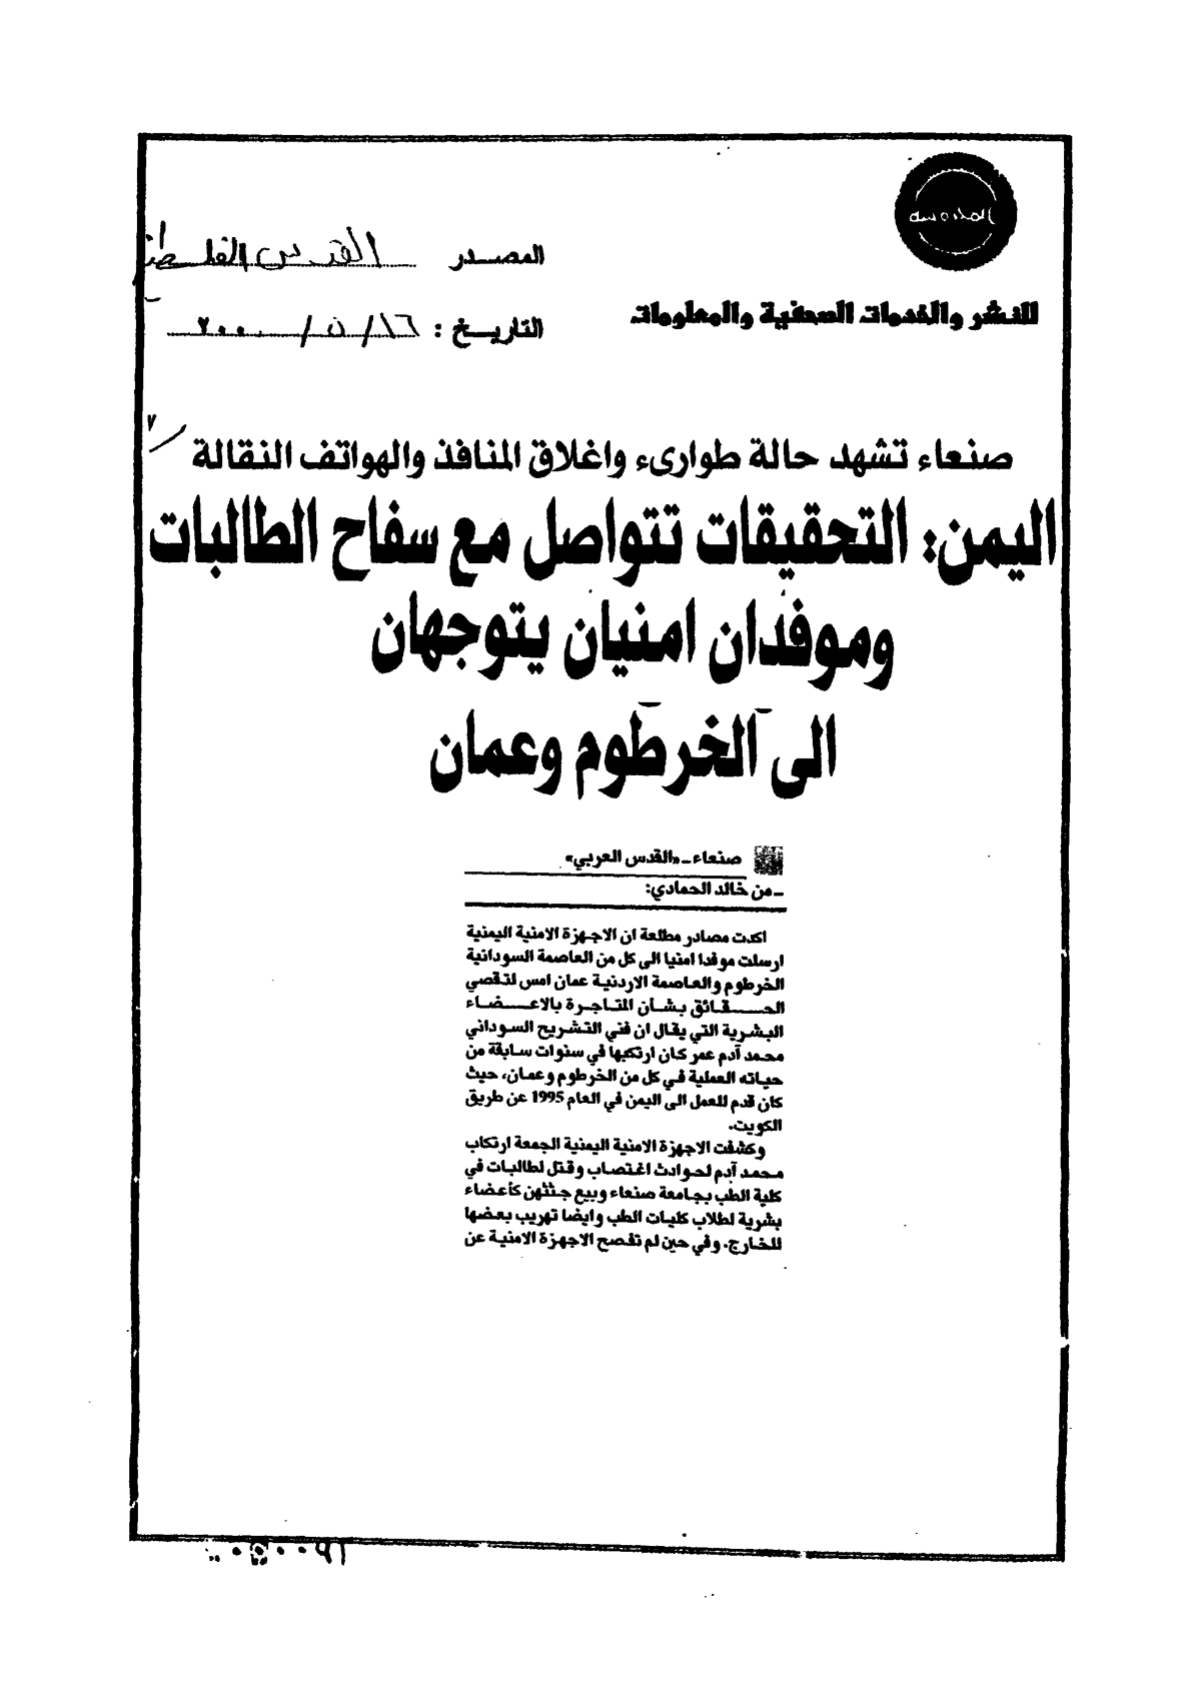 المصدر القدس الفلسطيني
للنشر والخدمات الصحفية والمعلومات
التاريخ : ١٦/٥/٢٠٠٠
٧/
صنعاء تشهد حالة طوارىء واغلاق المنافذ والهواتف النقالة
اليمن: التحقيقات تتواصل مع سفاح الطالبات
وموفدان امنيان يتوجهان
الى الخرطوم وعمان
صنعاء ـ «القدس العربي»
ـ من خالد الحمادي:
اكدت مصادر مطلعة ان الاجهزة الامنية اليمنية
ارسلت موفدا امنيا الى كل من العاصمة السودانية
الخرطوم والعاصمة الاردنية عمان امس لتقصي
الحـــقائق بشـأن المتاجرة بالاعـــضـاء
البشرية التي يقال ان فني التشريح السوداني
محمد آدم عمر كان ارتكبها في سنوات سابقة من
حياته العملية في كل من الخرطوم وعمان، حيث
كان قدم للعمل الى اليمن في العام 1995 عن طريق
الكويت.
وكشفت الاجهزة الامنية اليمنية الجمعة ارتكاب
محمد آدم لحوادث اغتصاب وقتل لطالبات في
كلية الطب بجامعة صنعاء وبيع جثثهن كأعضاء
بشرية لطلاب كليات الطب وايضا تهريب بعضها
للخارج. وفي حين لم تفصح الاجهزة الامنية عن